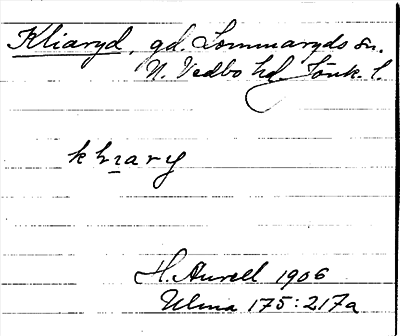 Kliaryd, gd. Lommaryds sn.
N. Vedbo hd. Jönk. l.
H. Aurell 1906
Ulma 175:217a